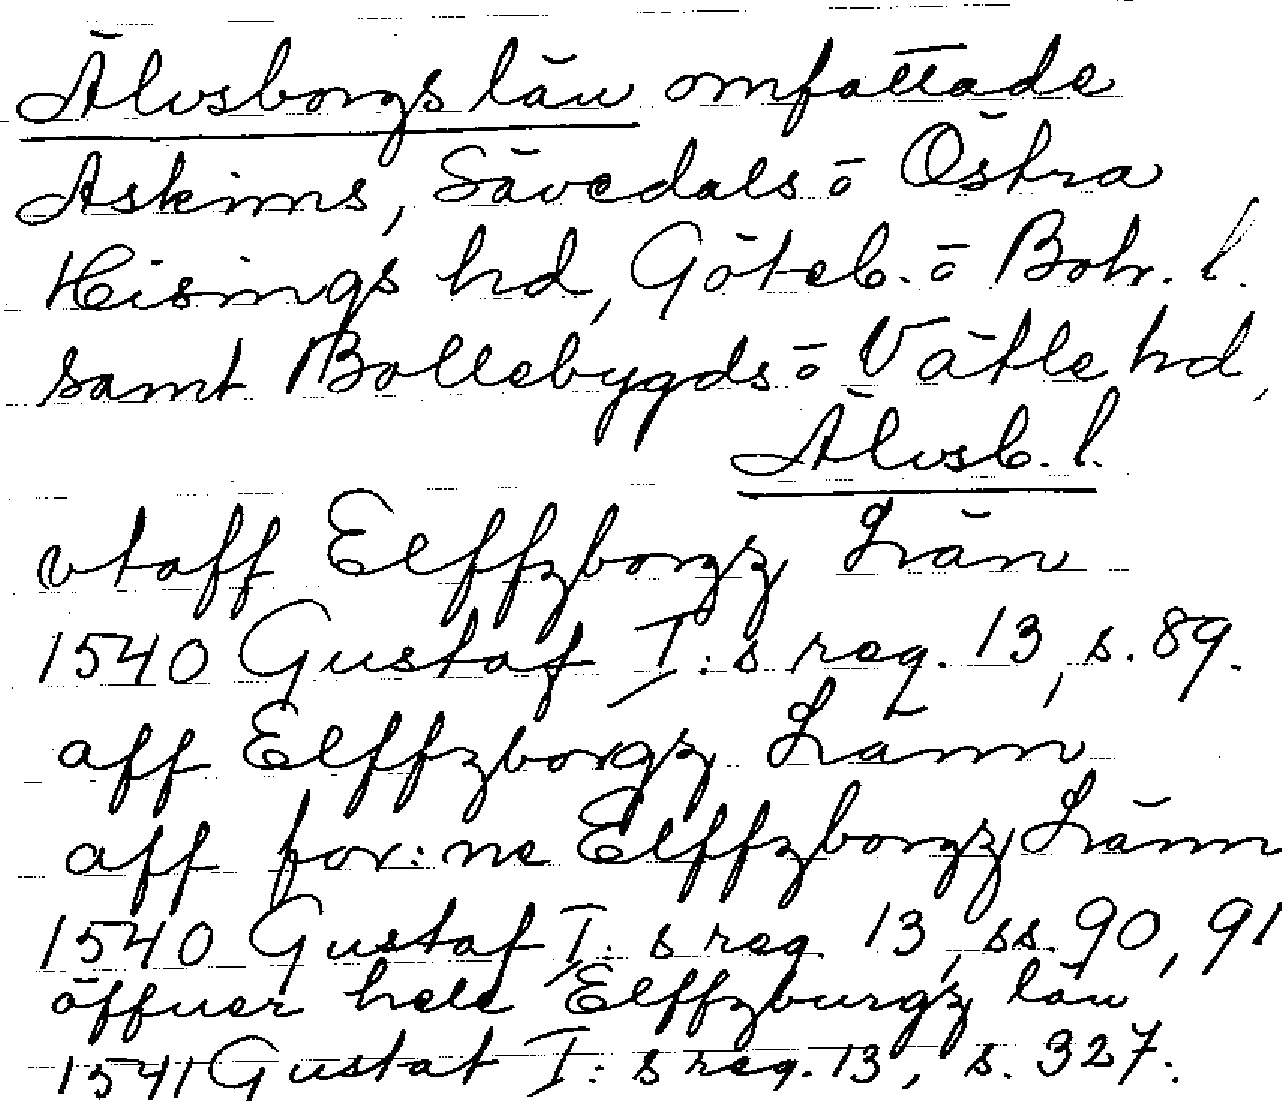 Älvsborgs län omfattade
Askims, Sävedals o Östra
Hisings hd, Göteb. o Boh. l.
samt Bollebygds o Vätle hd,
Älvsb. l.
vtaff Elffzborgz Län
1540 Gustaf I:s reg. 13, s. 89.
aff Elffzborgz Länn
aff for:ne Elffzborgz Länn
1540 Gustaf I:s reg 13, ss. 90, 91
öffuer hele Elffzburgz län
1541 Gustaf I:s reg. 13, s. 327.